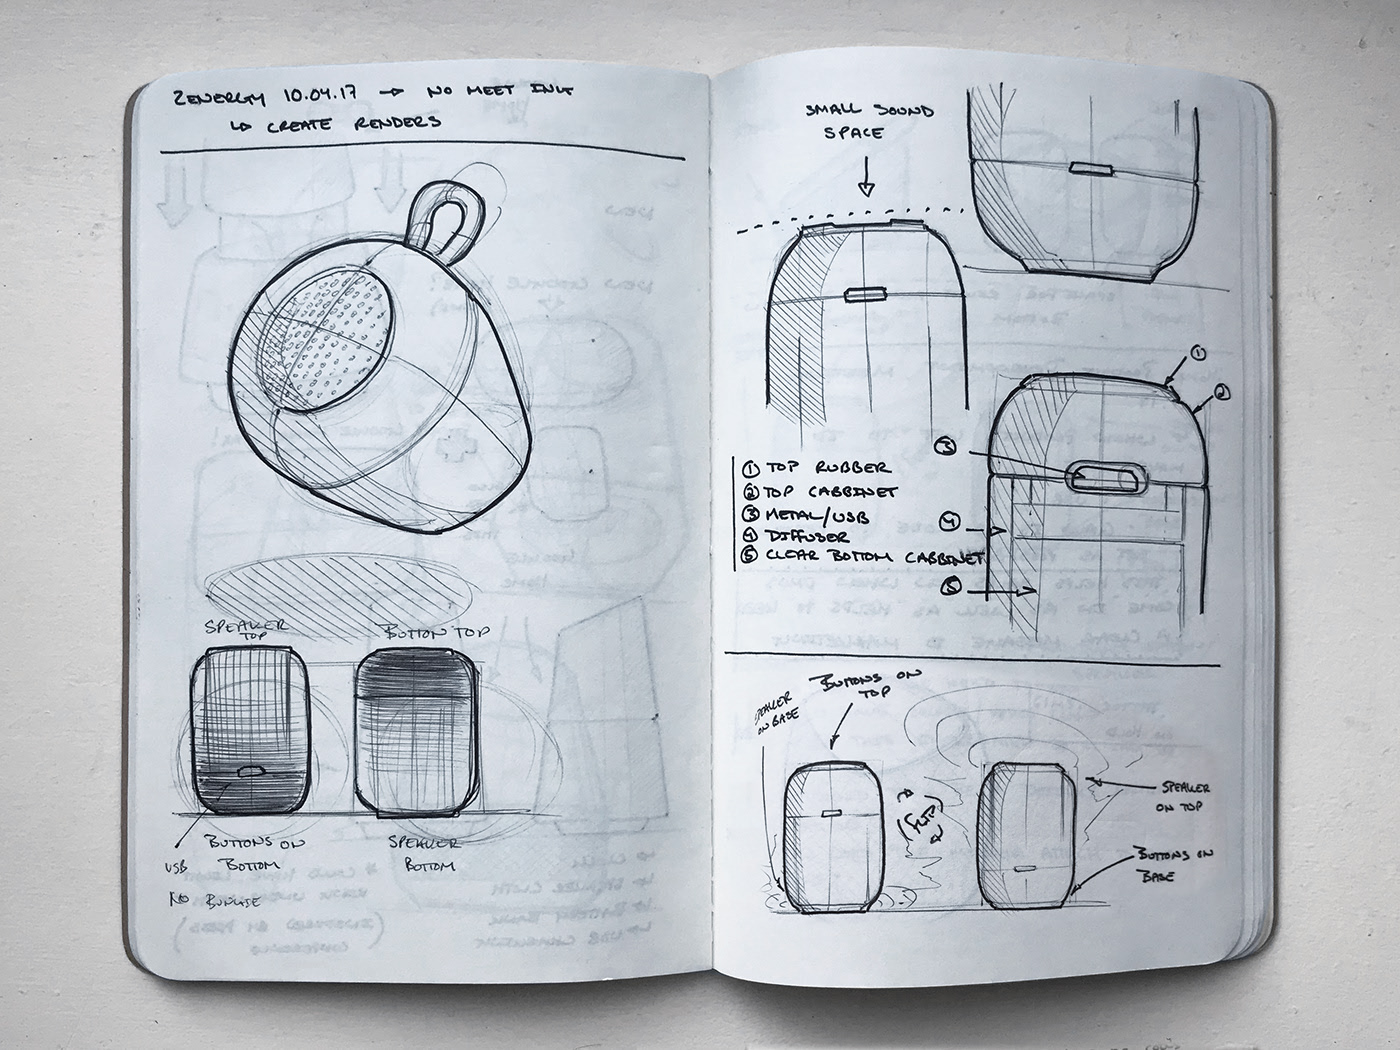 ZENERGY 10.04.17 → NO MEET
↳ CREATE RENDERS
SPEAKER
TOP
BUTTON TOP
BUTTONS ON
BOTTOM
SPEAKER
BOTTOM
USB
NO
SMALL SOUND
SPACE
1
2
3
① TOP RUBBER
② TOP CABBINET
③ METAL/USB
④ DIFFUSER
⑤ CLEAR BOTTOM CABBINET
4
5
SPEAKER
ON BASE
BUTTONS ON
TOP
SPEAKER
ON TOP
BUTTONS ON
BASE